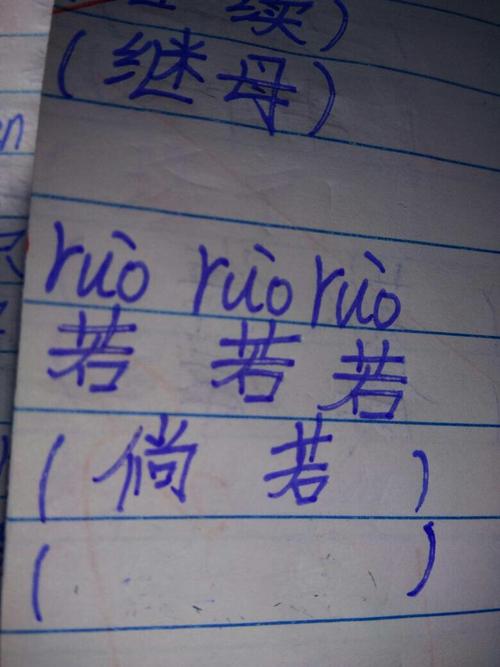 续)
(继母)
ruò ruò ruò
若 若 若
(倘 若)
( )